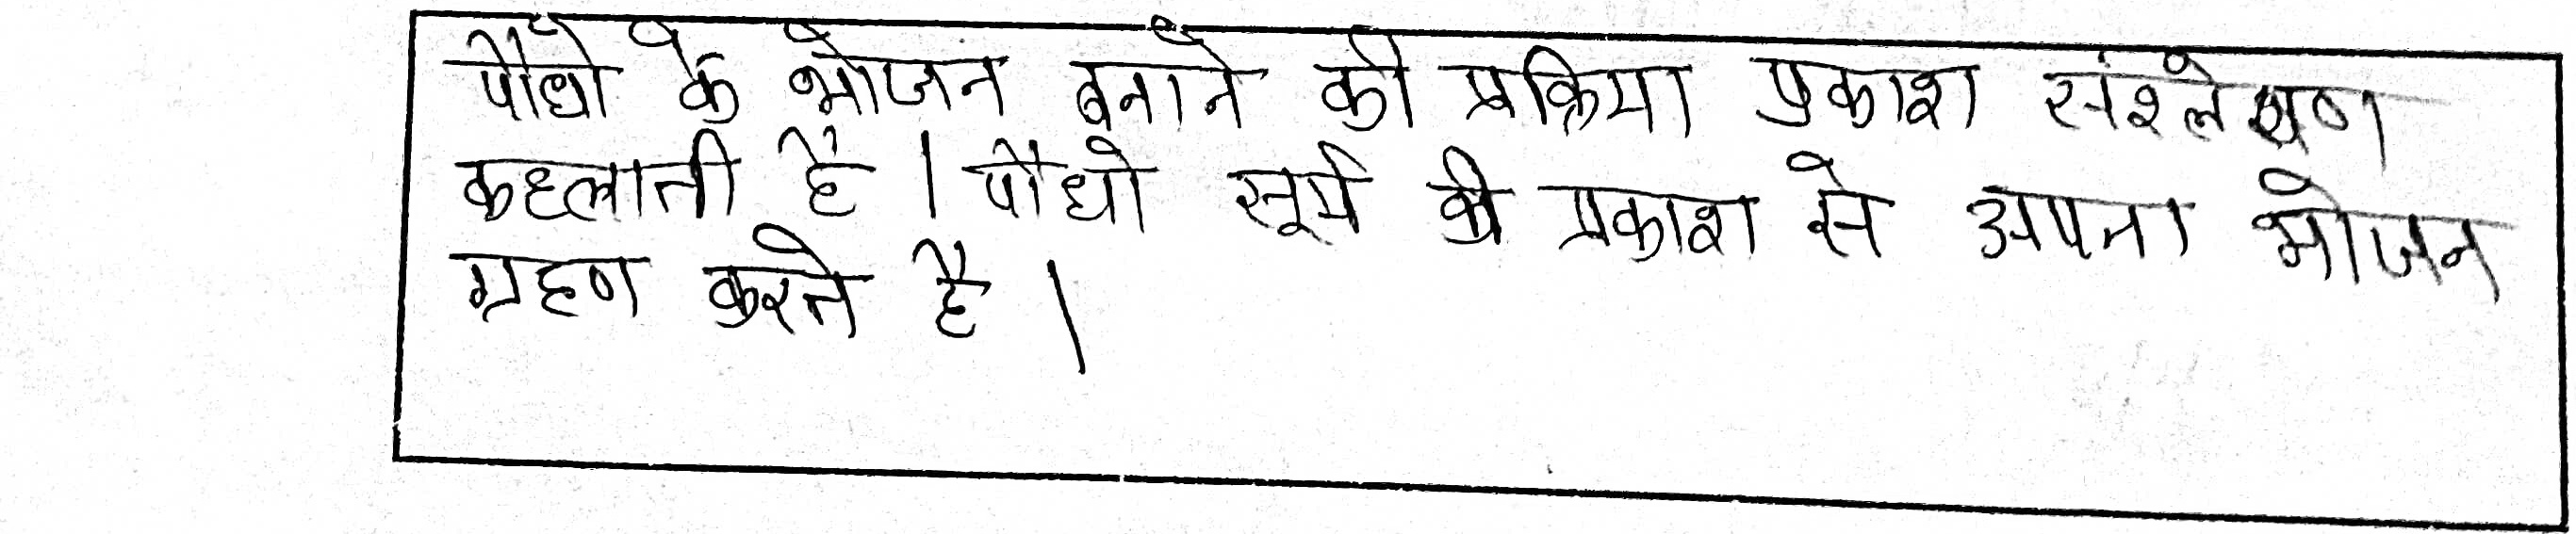 पौधो के भोजन बनाने की प्रक्रिया प्रकाश संश्लेषण
कहलाती है। पौधो सूर्य की प्रकाश से अपना भोजन
ग्रहण करते है।